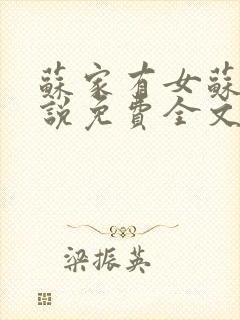 蘇家有女蘇
說免費全文
梁振英